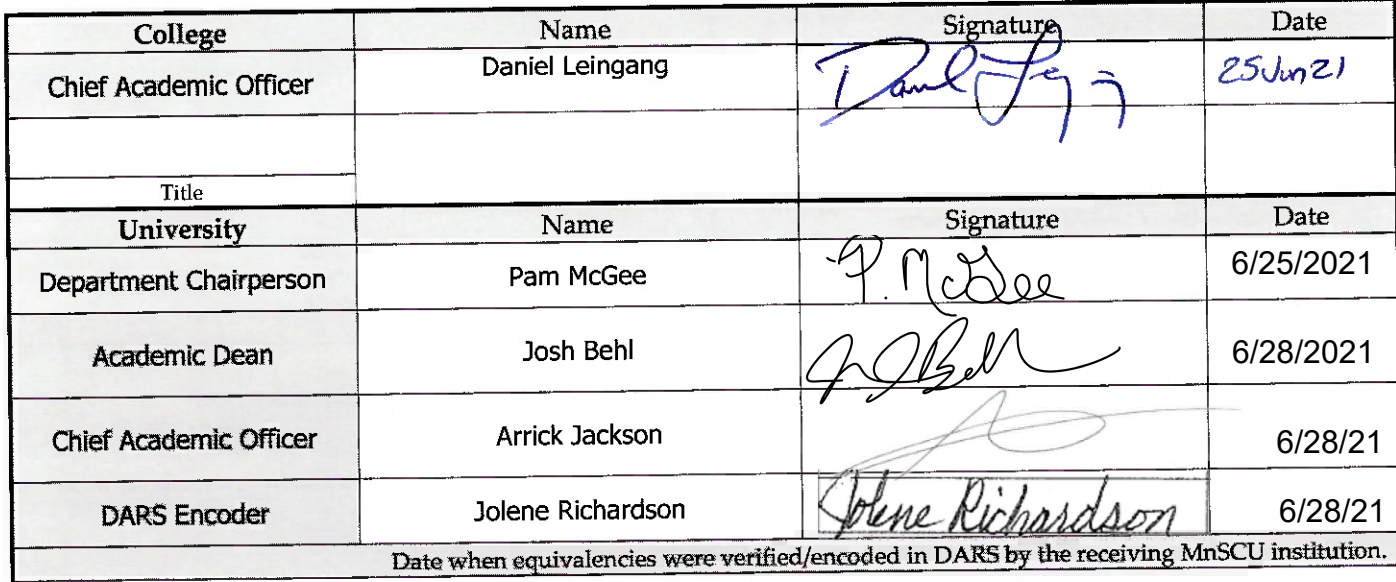 College Name Signature Date
Chief Academic Officer Daniel Leingang Daniel 25Jun21
Title
University Name Signature Date
Department Chairperson Pam McGee P. McGee 6/25/2021
Academic Dean Josh Behl Behl 6/28/2021
Chief Academic Officer Arrick Jackson 6/28/21
DARS Encoder Jolene Richardson Jolene Richardson 6/28/21
Date when equivalencies were verified/encoded in DARS by the receiving MnSCU institution.